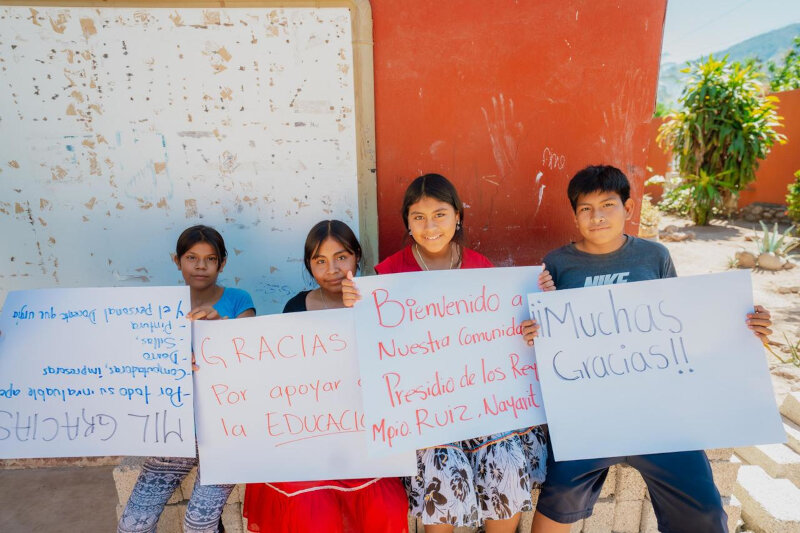 MIL GRACIAS
-Por todo su invaluable apo
Computadoras, impresoras
-
Sillas,
- Pintura
y el personal Docente que urgia
GRACIAS
Por apoyar
la EDUCACIO
Bienvenido a
Nuestra Comunida
Presidio de los Rey
Mpio. RUIZ, Nayarit
¡¡Muchas
Gracias!!
NIKE